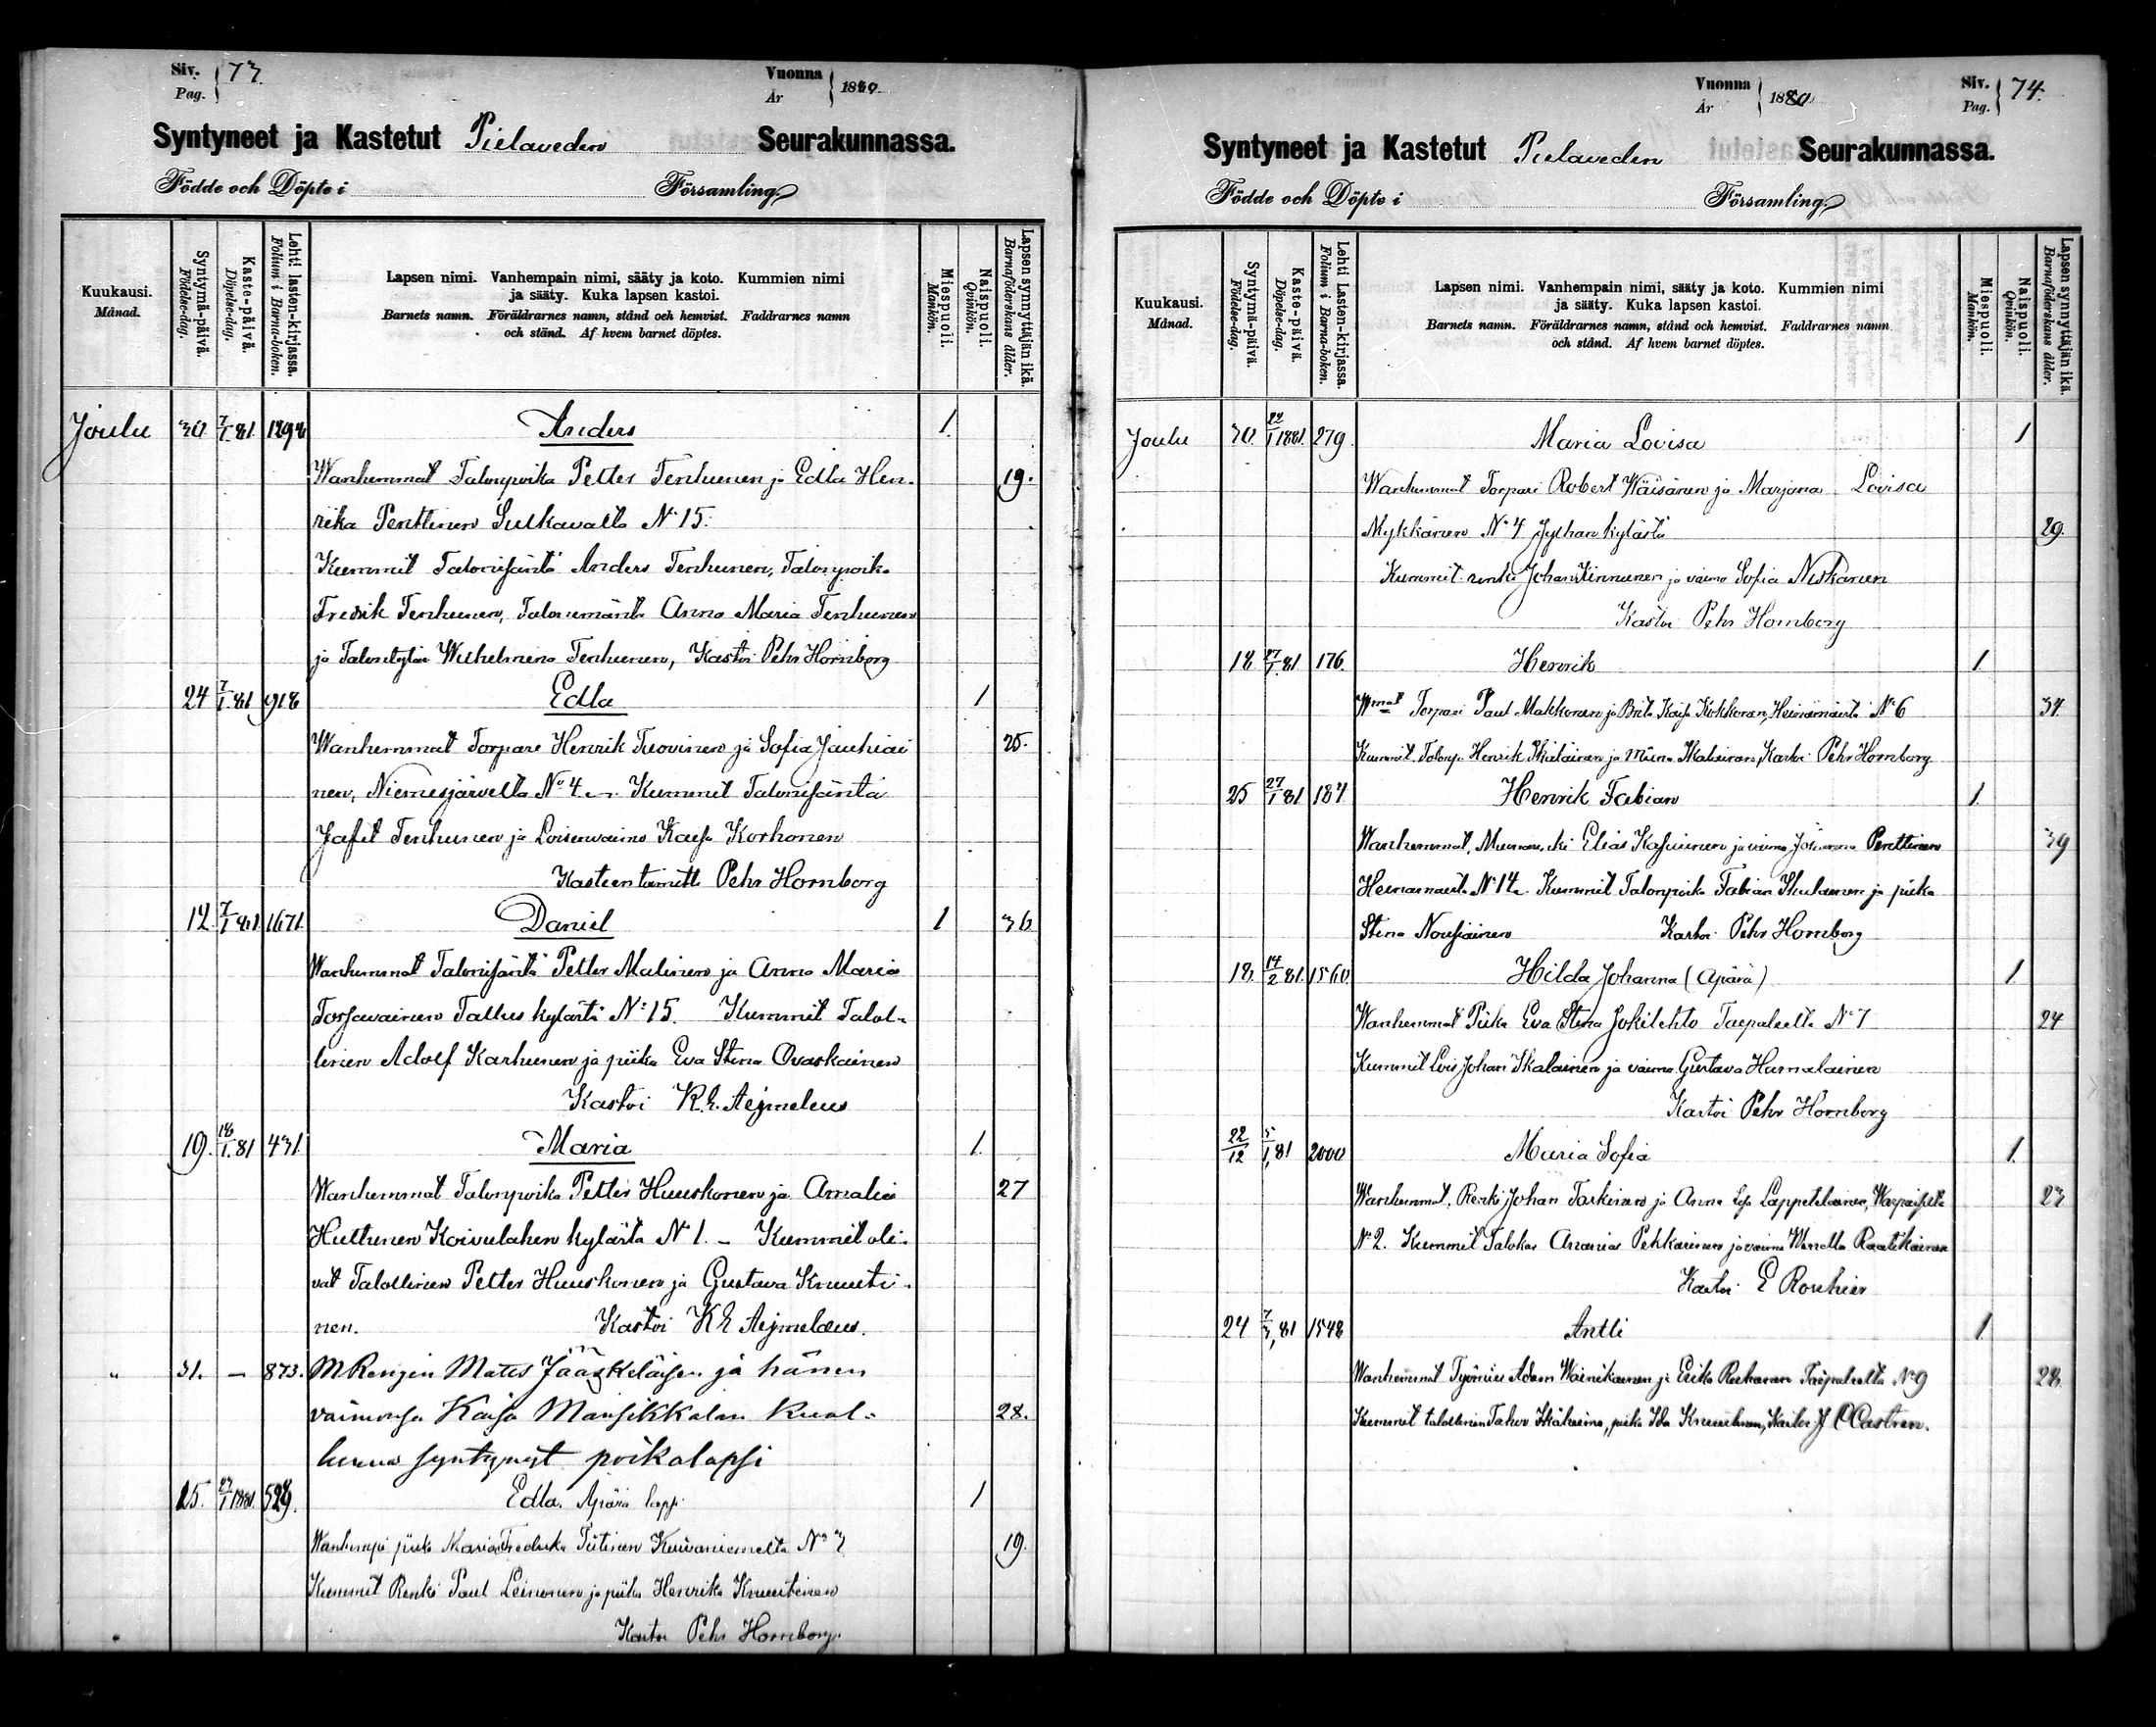 Siv. Pag. 73.
Vuonna År 1880.
Syntyneet ja Kastetut Pielaveden Seurakunnassa.
Födde och Döpte i Församling.
Kuukausi. Månad.
Syntymä-päivä. Födelse-dag.
Kaste-päivä. Döpelse-dag.
Lehti lasten-kirjassa. Folium i Barna-boken.
Lapsen nimi. Vanhempain nimi, sääty ja koto. Kummien nimi
ja sääty. Kuka lapsen kastoi.
Barnets namn. Föräldrarnes namn, stånd och hemvist. Faddrarnes namn
och stånd. Af hvem barnet döptes.
Miespuoli. Mankön.
Naispuoli. Qvinkön.
Lapsen synnyttäjän ikä. Barnaföderskans ålder.
Joulu 30 7/1.81. 1298 Anders 1.
Wanhemmat Talonpoika Petter Tenhunen ja Edla Hen- 19.
rika Penttinen Sulkavalta No 15.
Kummit Talonisäntä Anders Tenhunen, Talonpoika
Fredrik Tenhunen, Talonemäntä Anna Maria Tenhunen
ja Talontytär Wilhelmina Tenhunen, Kastoi Pehr Hornborg
24 7/1.81 918 Edla 1
Wanhemmat Torpare Henrik Tuovinen ja Sofia Jauhiai 25.
nen, Niemisjärvellä No 4. Kummit Talonisäntä
Jafet Tenhunen ja Loisenvaimo Kaisa Korhonen
Kasteen toimitti Pehr Hornborg
12. 7/1 81. 1671. Daniel 1 36
Wanhemmat Talonisäntä Petter Malinen ja Anna Maria
Torsawainen Tallus kylästä No 15. Kummit Talol-
linen Adolf Karhunen ja piika Eva Stina Ovaskainen
Kastoi K. E. Aejmelaeus
19. 18/1.81 431. Maria 1.
Wanhemmat Talonpoika Petter Huuskonen ja Amalia 27
Huttunen Koivulahen kylästä No 1. – Kummit oli-
vat Talollinen Petter Huuskonen ja Gustava Knuuti-
nen. Kastoi K E Aejmelaeus.
" 31. – 873. M Rengin Mates Jääskeläisen ja hänen
vaimonsa Kaisa Mansikkalan kuol- 28.
luna syntynyt poikalapsi
25. 1/1881. 529. Edla. Äpärä lapsi 1
Wanhempi piika Maria Fredrika Tiitinen Kuivaniemeltä No 3 19.
Kummit Renki Paul Leinonen ja piika Henrika Knuutinen
Kastoi Pehr Hornborg.
Vuonna År 1880
Siv. Pag. 74.
Syntyneet ja Kastetut Pielaveden Seurakunnassa.
Födde och Döpte i Församling.
Kuukausi. Månad.
Syntymä-päivä. Födelse-dag.
Kaste-päivä. Döpelse-dag.
Lehti Lasten-kirjassa. Folium i Barna-boken.
Lapsen nimi. Vanhempain nimi, sääty ja koto. Kummien nimi
ja sääty. Kuka lapsen kastoi.
Barnets namn. Föräldrarnes namn, stånd och hemvist. Faddrarnes namn
och stånd. Af hvem barnet döptes.
Miespuoli. Mankön.
Naispuoli. Qvinkön.
Lapsen synnyttäjän ikä. Barnaföderskans ålder.
Joulu 30. 22/1 1881. 279. Maria Lovisa 1
Wanhemmat Torpari Robert Wäisänen ja Marjana Lovisa
Mykkänen No 4 Jylhän kylästä 29.
Kummit renki Johan Kinnunen ja vaimo Sofia Niskanen
Kastoi Pehr Hornborg
18 27/1.81 176. Henrik 1.
Wmat Torpari Paul Makkonen ja Brita Kaisa Kokkonen, Heinämäestä No 6 34.
Kummit Talonp. Henrik ja Miina Kastoi Pehr Hornborg
25 27/1 81 187. Henrik Fabian 1.
Wanhemmat, Elias ja vaimo Johanna Penttinen 39
No 14. Kummit Talonpoika Fabian ja piika
Stina Nousiainen Kastoi Pehr Hornborg
18. 14/2 81. 1560. Hilda Johanna (Äpärä) 1.
Wanhemmat Piika Eva Stina Jokilehto Taepaleelta No 7 24
Kummit Lois Johan ja vaimo Gustava Humalainen
Kastoi Pehr Hornborg
22/12 5/1,81 2000 Maria Sofia 1.
Wanhemmat, Renki Johan Tarkinen ja Anna Lappeteläinen, 23
No 2. Kummit Ananias Pekkarinen ja vaimo Raatikainen
Kastoi E Rouhier
24 7/3,81 1548 Antti 1
Wanhemmat Työmies Adam Wainikainen ja Erika No 9 28
Kummit talollinen piika Ida Kastoi J C Castren.